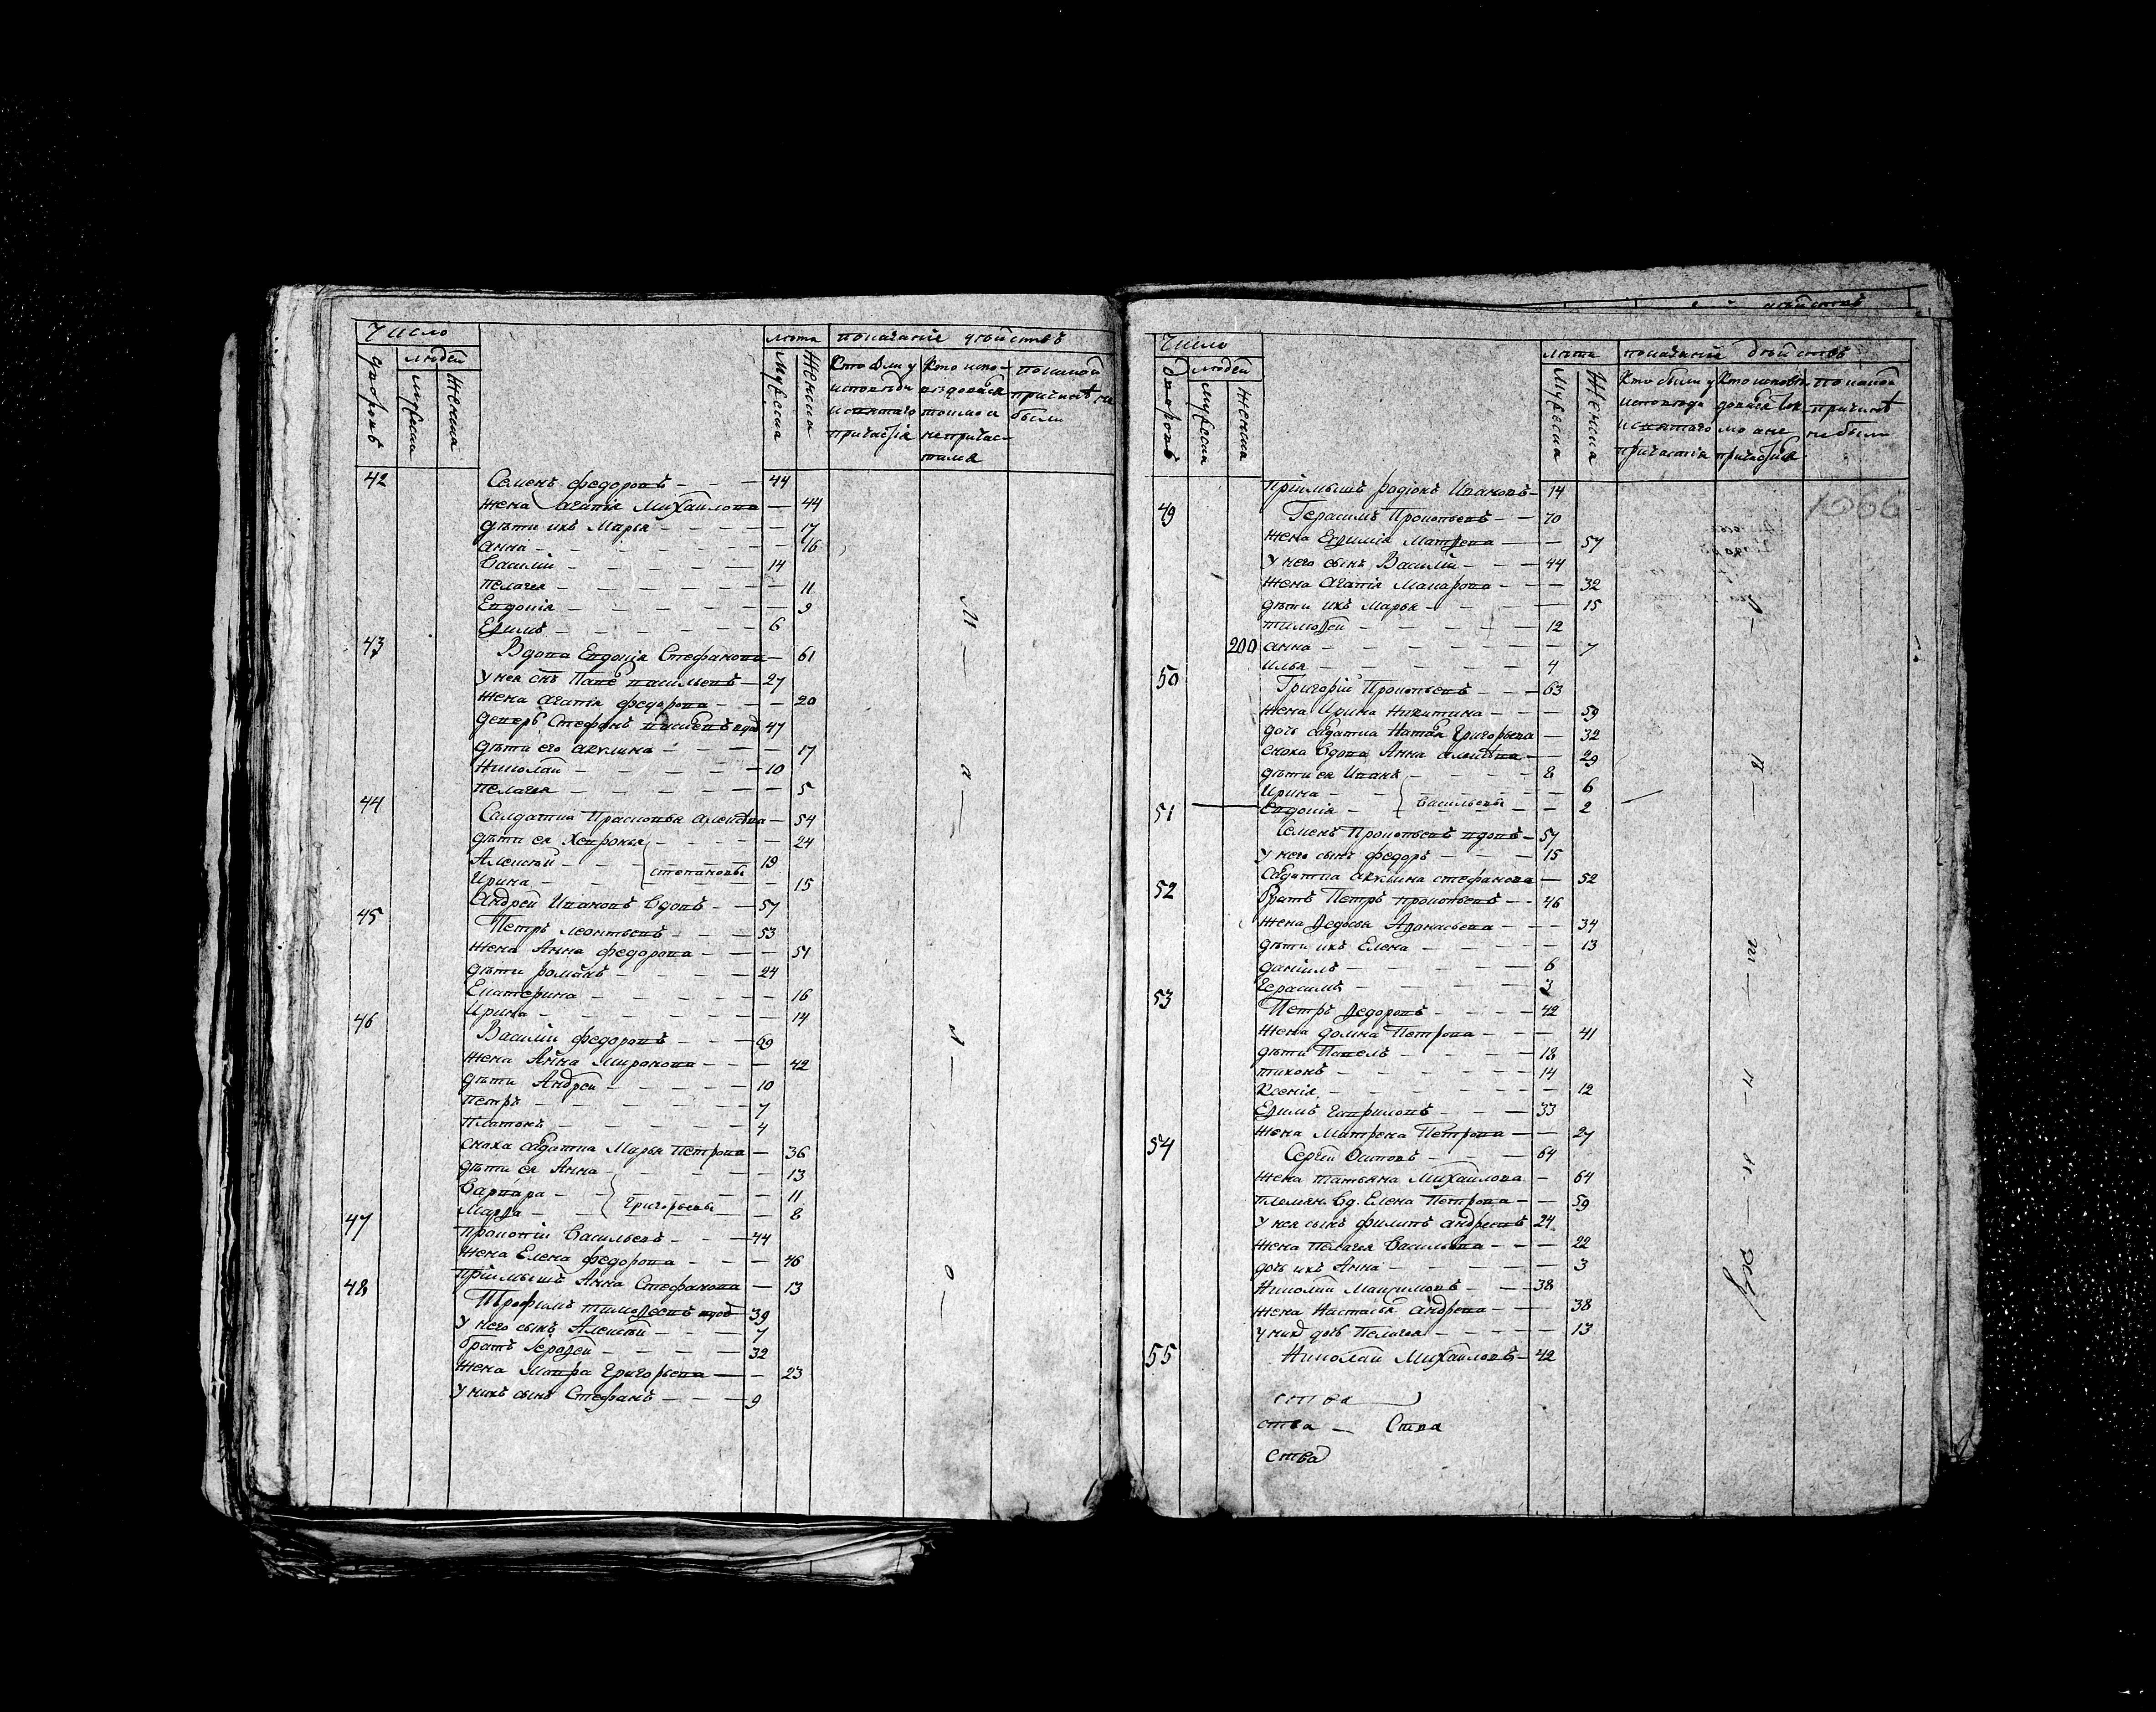 Число
людей
лѣта
показаніе дѣйствъ
дворовъ
мужеска
женска
мужеска
женска
Кто были у
исповѣди
и святаго
причастія
Кто испо-
вѣдовался
токмо а
не причас-
тился
42 Семенъ Федоровъ — 44
жена Агапія Михайлова — 44
дѣти ихъ Марья — 17
Анна — 16
Василій — 14
Пелагея — 11
Евдокія — 9
Ефимъ — 6
43 Вдова Евдокія Стефанова — 61
у нея снъ Павелъ Васильевъ — 27
жена Агапія Федорова — 20
деверь Стефанъ вдов 47
дѣти его Акулина — 17
Николай — 10
Пелагея — 5
44 Салдатка Прасковья Алексѣева — 54
дѣти ея Хевронья — 24
Алексѣй — 19
Степановы
Ирина — 15
Андрей Ивановъ вдовъ — 57
45 Петръ Леонтьевъ — 53
жена Анна Федорова — 51
дѣти Романъ — 24
Екатерина — 16
Ирина — 14
46 Василій Федоровъ — 69
жена Анна Миронова — 42
дѣти Андрей — 10
Петръ — 7
Платонъ — 4
сноха салдатка Марья Петрова — 36
дѣти ея Анна — 13
Варвара — 11
Григорьевы
Марфа — 8
47 Прокопій Васильевъ — 44
жена Елена Федорова — 46
пріимышъ Анна Стефанова — 13
48 Трофимъ Тимофеевъ вдов 39
у него сынъ Алексѣй — 7
братъ Ерофей — 32
жена Мавра Григорьева — 23
у нихъ сынъ Стефанъ — 9
Число
людей
лѣта
показаніе дѣйствъ
дворовъ
мужеска
женска
мужеска
женска
Кто были у
исповѣди
и святаго
причастія
1066
пріимышъ Родіонъ Ивановъ — 14
49 Герасимъ Прокопьевъ — 70
жена Ефимія Матфева — 57
у него сынъ Василій — 44
жена Агапія Макарова — 32
дѣти ихъ Марья — 15
Тимофей — 12
200 Анна — 7
Илья — 4
50 Григорій Прокопьевъ — 63
жена Ирина Никитина — 59
дочь салдатка Наталья Григорьева — 32
сноха вдова Анна Алексѣева — 29
дѣти ея Иванъ — 8
Ирина — 6
Васильевы
51 Евдокія — 2
Семенъ Прокопьевъ вдовъ — 57
у него сынъ Федоръ — 15
Салдатка Акулина Стефанова — 52
52 братъ Петръ Прокопьевъ — 46
жена Федосья Афонасьева — 34
дѣти ихъ Елена — 13
Даніилъ — 6
Герасимъ — 3
53 Петръ Федоровъ — 42
жена Домна Петрова — 41
дѣти Павелъ — 18
Тихонъ — 14
Ксенія — 12
Ефимъ Гавриловъ — 33
жена Матрена Петрова — 27
54 Сергѣй Осиповъ — 64
жена Татьяна Михайлова — 64
племян. вд. Елена Петрова — 59
у нея сынъ Филипъ Андреевъ 24
жена Пелагея Васильева — 22
дочь ихъ Анна — 3
Николай Максимовъ — 38
жена Настасья Андрева — 38
у них дочь Пелагея — 13
55 Николай Михайловъ — 42
ства
ства — Ства
Ства